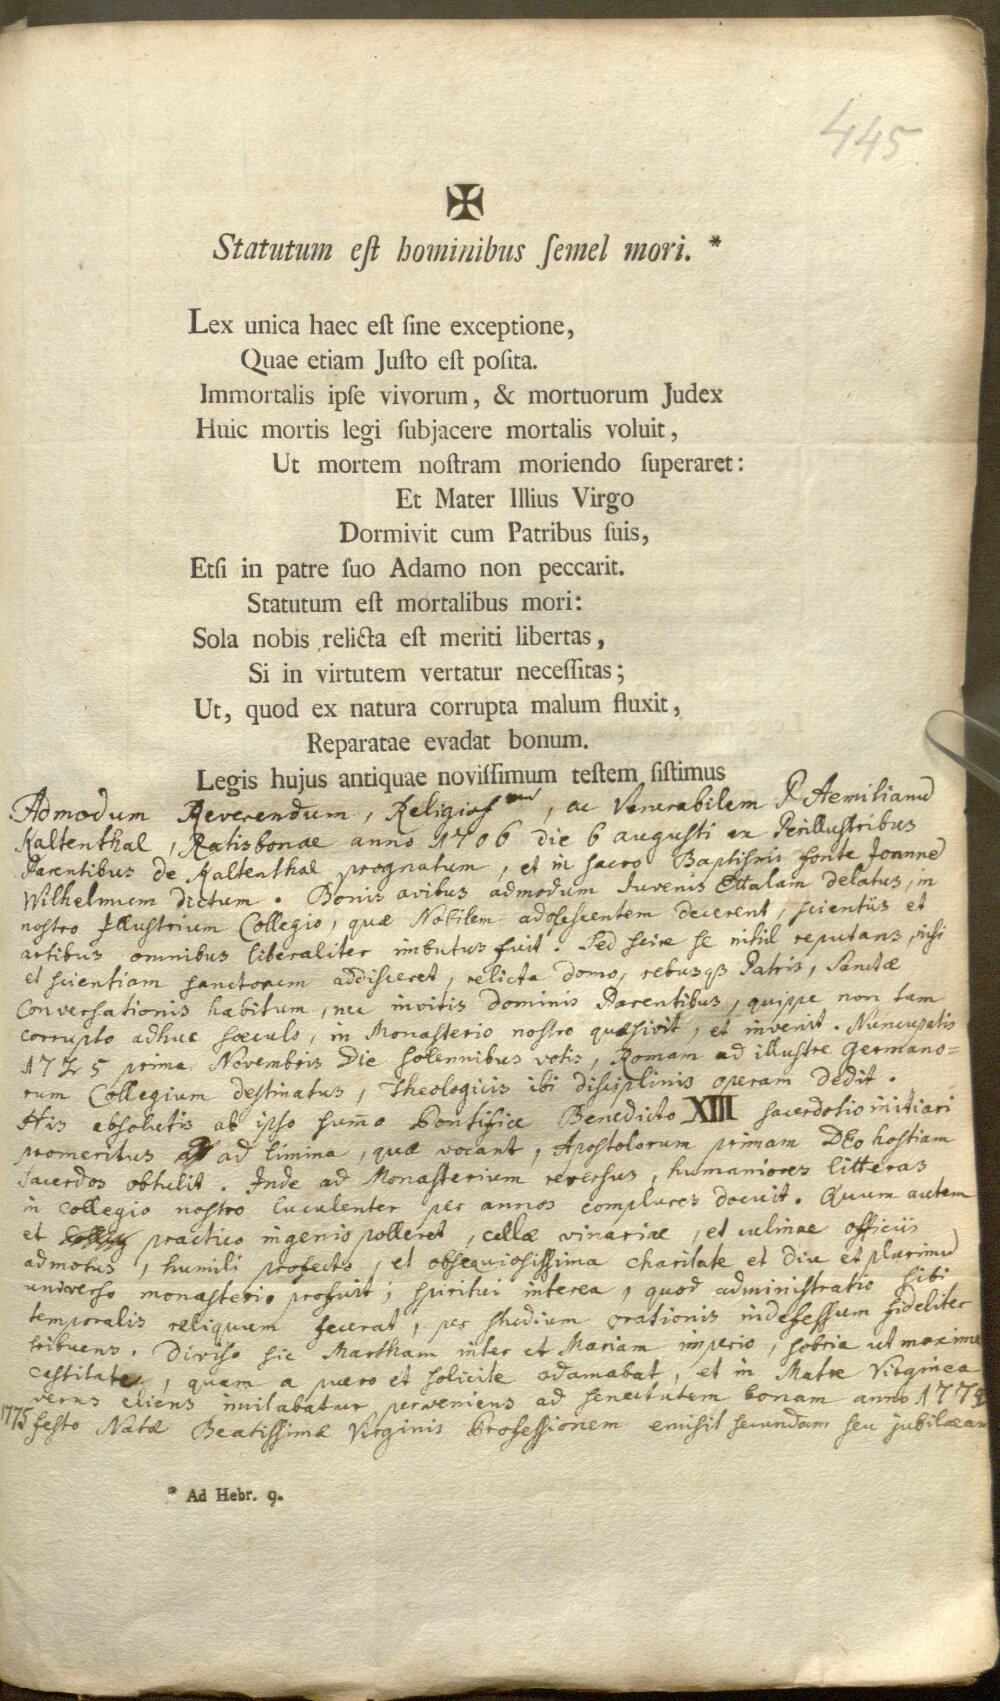 445
✠
Statutum eſt hominibus ſemel mori. *
Lex unica haec eſt ſine exceptione,
Quae etiam Juſto eſt poſita.
Immortalis ipſe vivorum, & mortuorum Judex
Huic mortis legi ſubjacere mortalis voluit,
Ut mortem noſtram moriendo ſuperaret:
Et Mater Illius Virgo
Dormivit cum Patribus ſuis,
Etſi in patre ſuo Adamo non peccarit.
Statutum eſt mortalibus mori:
Sola nobis relicta eſt meriti libertas,
Si in virtutem vertatur neceſſitas;
Ut, quod ex natura corrupta malum fluxit,
Reparatae evadat bonum.
Legis hujus antiquae noviſſimum teſtem ſiſtimus
Admodum Reverendum, Religios mum, ac Venerabilem P. Aemilianū
Kaltenthal, Ratisbonae anno 1706 die 6 augusti ex Perillustribus
Parentibus de Kaltenthal prognatum, et in sacro Baptismi fonte Joanne
Wilhelmum dictum. Bonis avibus admodum Juvenis Ettalam delatus, in
nostro Jllustrium Collegio, quæ Nobilem adolescentem decerent, scientiis et
artibus omnibus liberaliter imbutus fuit. Sed scire se nihil reputans, nisi
et scientiam sanctorum addisceret, relicta domo, rebusqꝫ Patris, Sanctæ
Conversationis habitum, nec invitis dominis Parentibus, quippe non tam
corrupto adhuc sæculo, in Monasterio nostro quæsivit, et invenit. Nuncupatis
1725 prima Novembris Die solennibus votis, Romam ad illustre Germano=
rum Collegium destinatus, Theologicis ibi disciplinis operam dedit.
His absolutis ab ipso sum̄o Pontifice Benedicto XIII sacerdotio initiari
promeritus ad limina, quæ vocant, Apostolorum primam DEo hostiam
Sacerdos obtulit. Inde ad Monasterium reversus, humaniores litteras
in Collegio nostro luculenter per annos complures docuit. Quum autem
et practico ingenio polleret, cellæ vinariae, et culinae officiis
admotus, humili profecto, et obsequiosissima charitate et diu et plurimū
universo monasterio profuit; spiritui interea, quod administratio sibi
temporalis reliquum fecerat, per studium orationis indefessum fideliter
tribuens. Diviso sic Martham inter et Mariam imperio, sobria ut maxime
castitate, quam a puero et solicite adamabat, et in Matre Virginea
verus cliens imitabatur, perveniens ad senectutem bonam anno 1775
1775 festo Natæ Beatissimæ Virginis Professionem emisit secundam seu jubilæam
* Ad Hebr. 9.